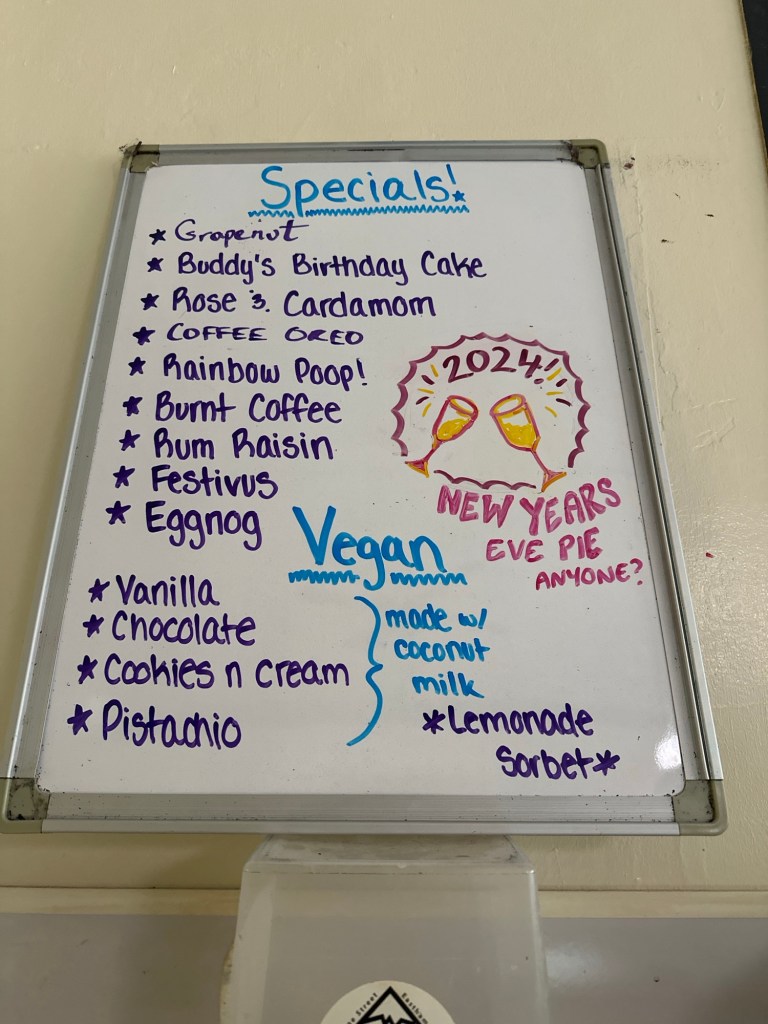 Specials!
* Grapenut
* Buddy's Birthday Cake
* Rose & Cardamom
* COFFEE OREO
* Rainbow Poop!
* Burnt Coffee
* Rum Raisin
* Festivus
* Eggnog
2024!
NEW YEARS
EVE PIE
ANYONE?
Vegan
* Vanilla
* Chocolate
* Cookies n Cream
* Pistachio
made w/
coconut
milk
*Lemonade
Sorbet*
Street
Eastham